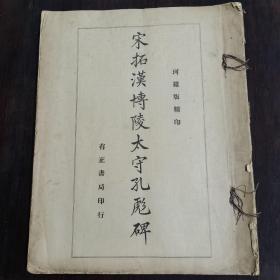 珂羅版精印
宋拓漢博陵太守孔彪碑
有正書局印行